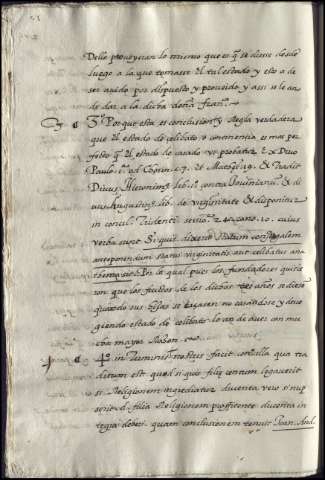 Dello proveyeran lo mismo que es q̃ se diesse desde
luego a la que tomasse el tal estado y esto a de
ser auido por dispuesto y proueido y assi se le an
de dar a la dicha doña fran.ca
3º Porque esta es conclusion y Regla verdadera
que el estado de celibato o continencia es mas per
fetto q̃ el estado de casado vt probatur Ex Diuo
Paulo 1ª ad Corint. 7. et Matthei. 19. et tradit
Diuus Hieronim9 lib. 1. contra Jouinianum et di
uus Augustin9 lib. de virginitate et disponitur
in concil. Tridenti. sessio. 24. cano. 10. cuius
verba sunt Si quis dixerit statum coniugalem
anteponendum statui virginitatis aut celibatus ana
thema sit. En la qual pues los fundadores quisie
ron que los frutos de los dichos tres años se diese
quando sus hijas se casasen no casandose y
giendo estado de celibato lo an de auer con mu
cha mayor Razon
4º in terminis fortius facit consulta qua tra
ditum est quod si quis filię centum legauerit
si Religionem ingrediatur ducenta vero si nup
serit d. filia Religionem profitente ducenta in
tegra debet. quam conclusionem tenuit Joan. And.